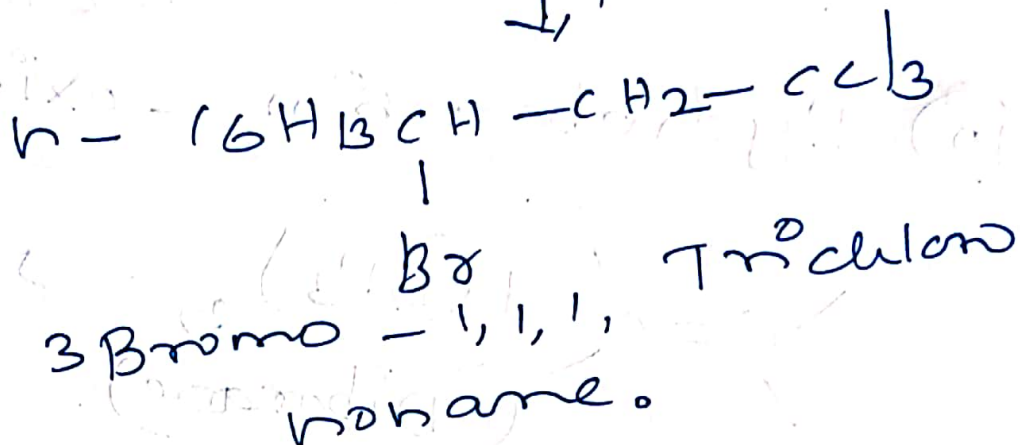 n- C6H13CH-CH2-CCl3
|
Br
3 Bromo - 1, 1, 1, Trichloro
nonane.